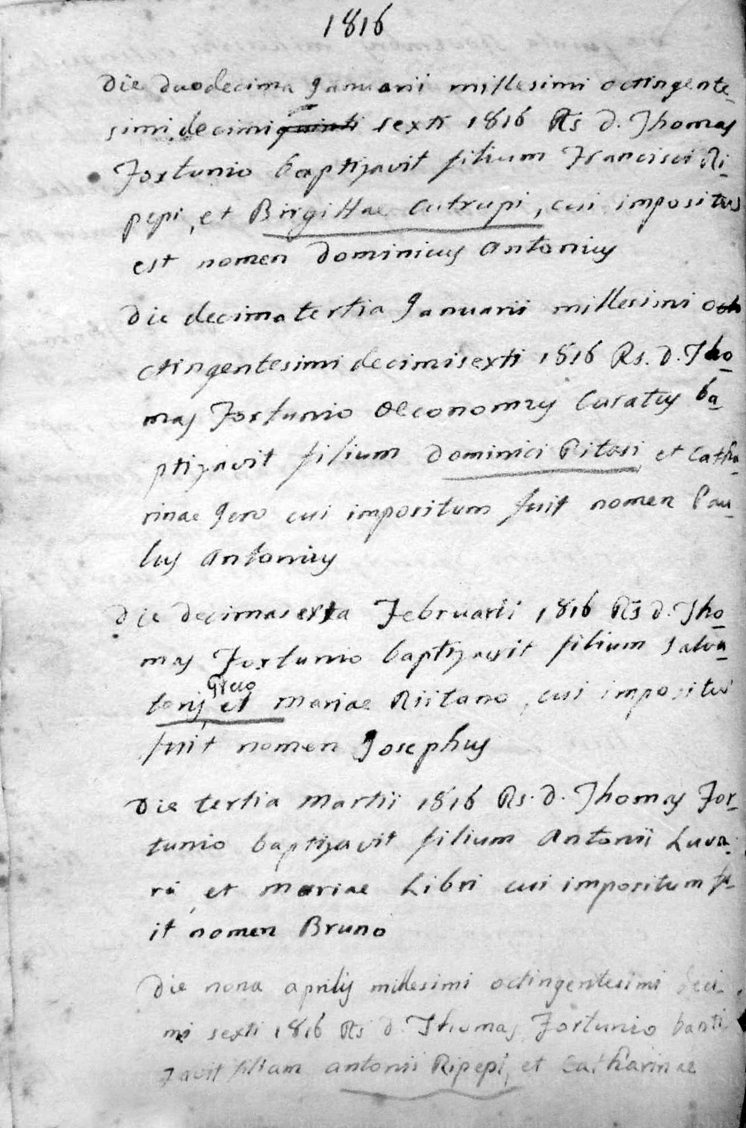 1816
Die duodecima Januarii millesimi octingente-
simi decimi quinti sexti 1816 Rs D. Thomas
Fortunio baptizavit filium Francisci Ri-
pepi, et Birgittae Cutrupi, cui impositus
est nomen Dominicus Antonius
Die decimatertia Januarii millesimi och
ctingentesimi decimisexti 1816 Rs. D. Tho-
mas Fortunio Oeconomus Curatus ba-
ptizavit filium Dominici Pitasi et Catha-
rinae Jero cui impositum fuit nomen Pau-
lus Antonius
Die decimasexta Februarii 1816 Rs D. Tho-
mas Fortunio baptizavit filium Salva-
Greco
toris, et Mariae Riitano, cui impositus
fuit nomen Josephus
Die tertia Martii 1816 Rs. D. Thomas For-
tunio baptizavit filium Antonii Luva-
rà, et Mariae Libri cui impositum fu-
it nomen Bruno
Die nona Aprilis millesimi octingentesimi deci-
mi sexti 1816 Rs D. Thomas Fortunio bapti
zavit filiam Antonii Ripepi, et Catharinae